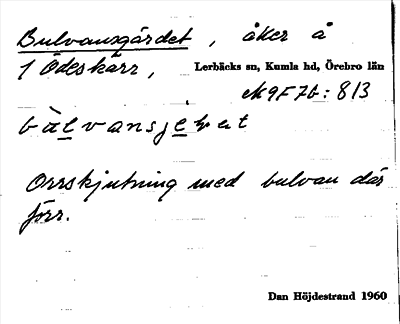 Bulvansgärdet, åker å
1 Ödeskärr,
Lerbäcks sn, Kumla hd, Örebro län
M9F7b: 8/3
Orrskjutning med bulvan där
förr.
Dan Höjdestrand 1960